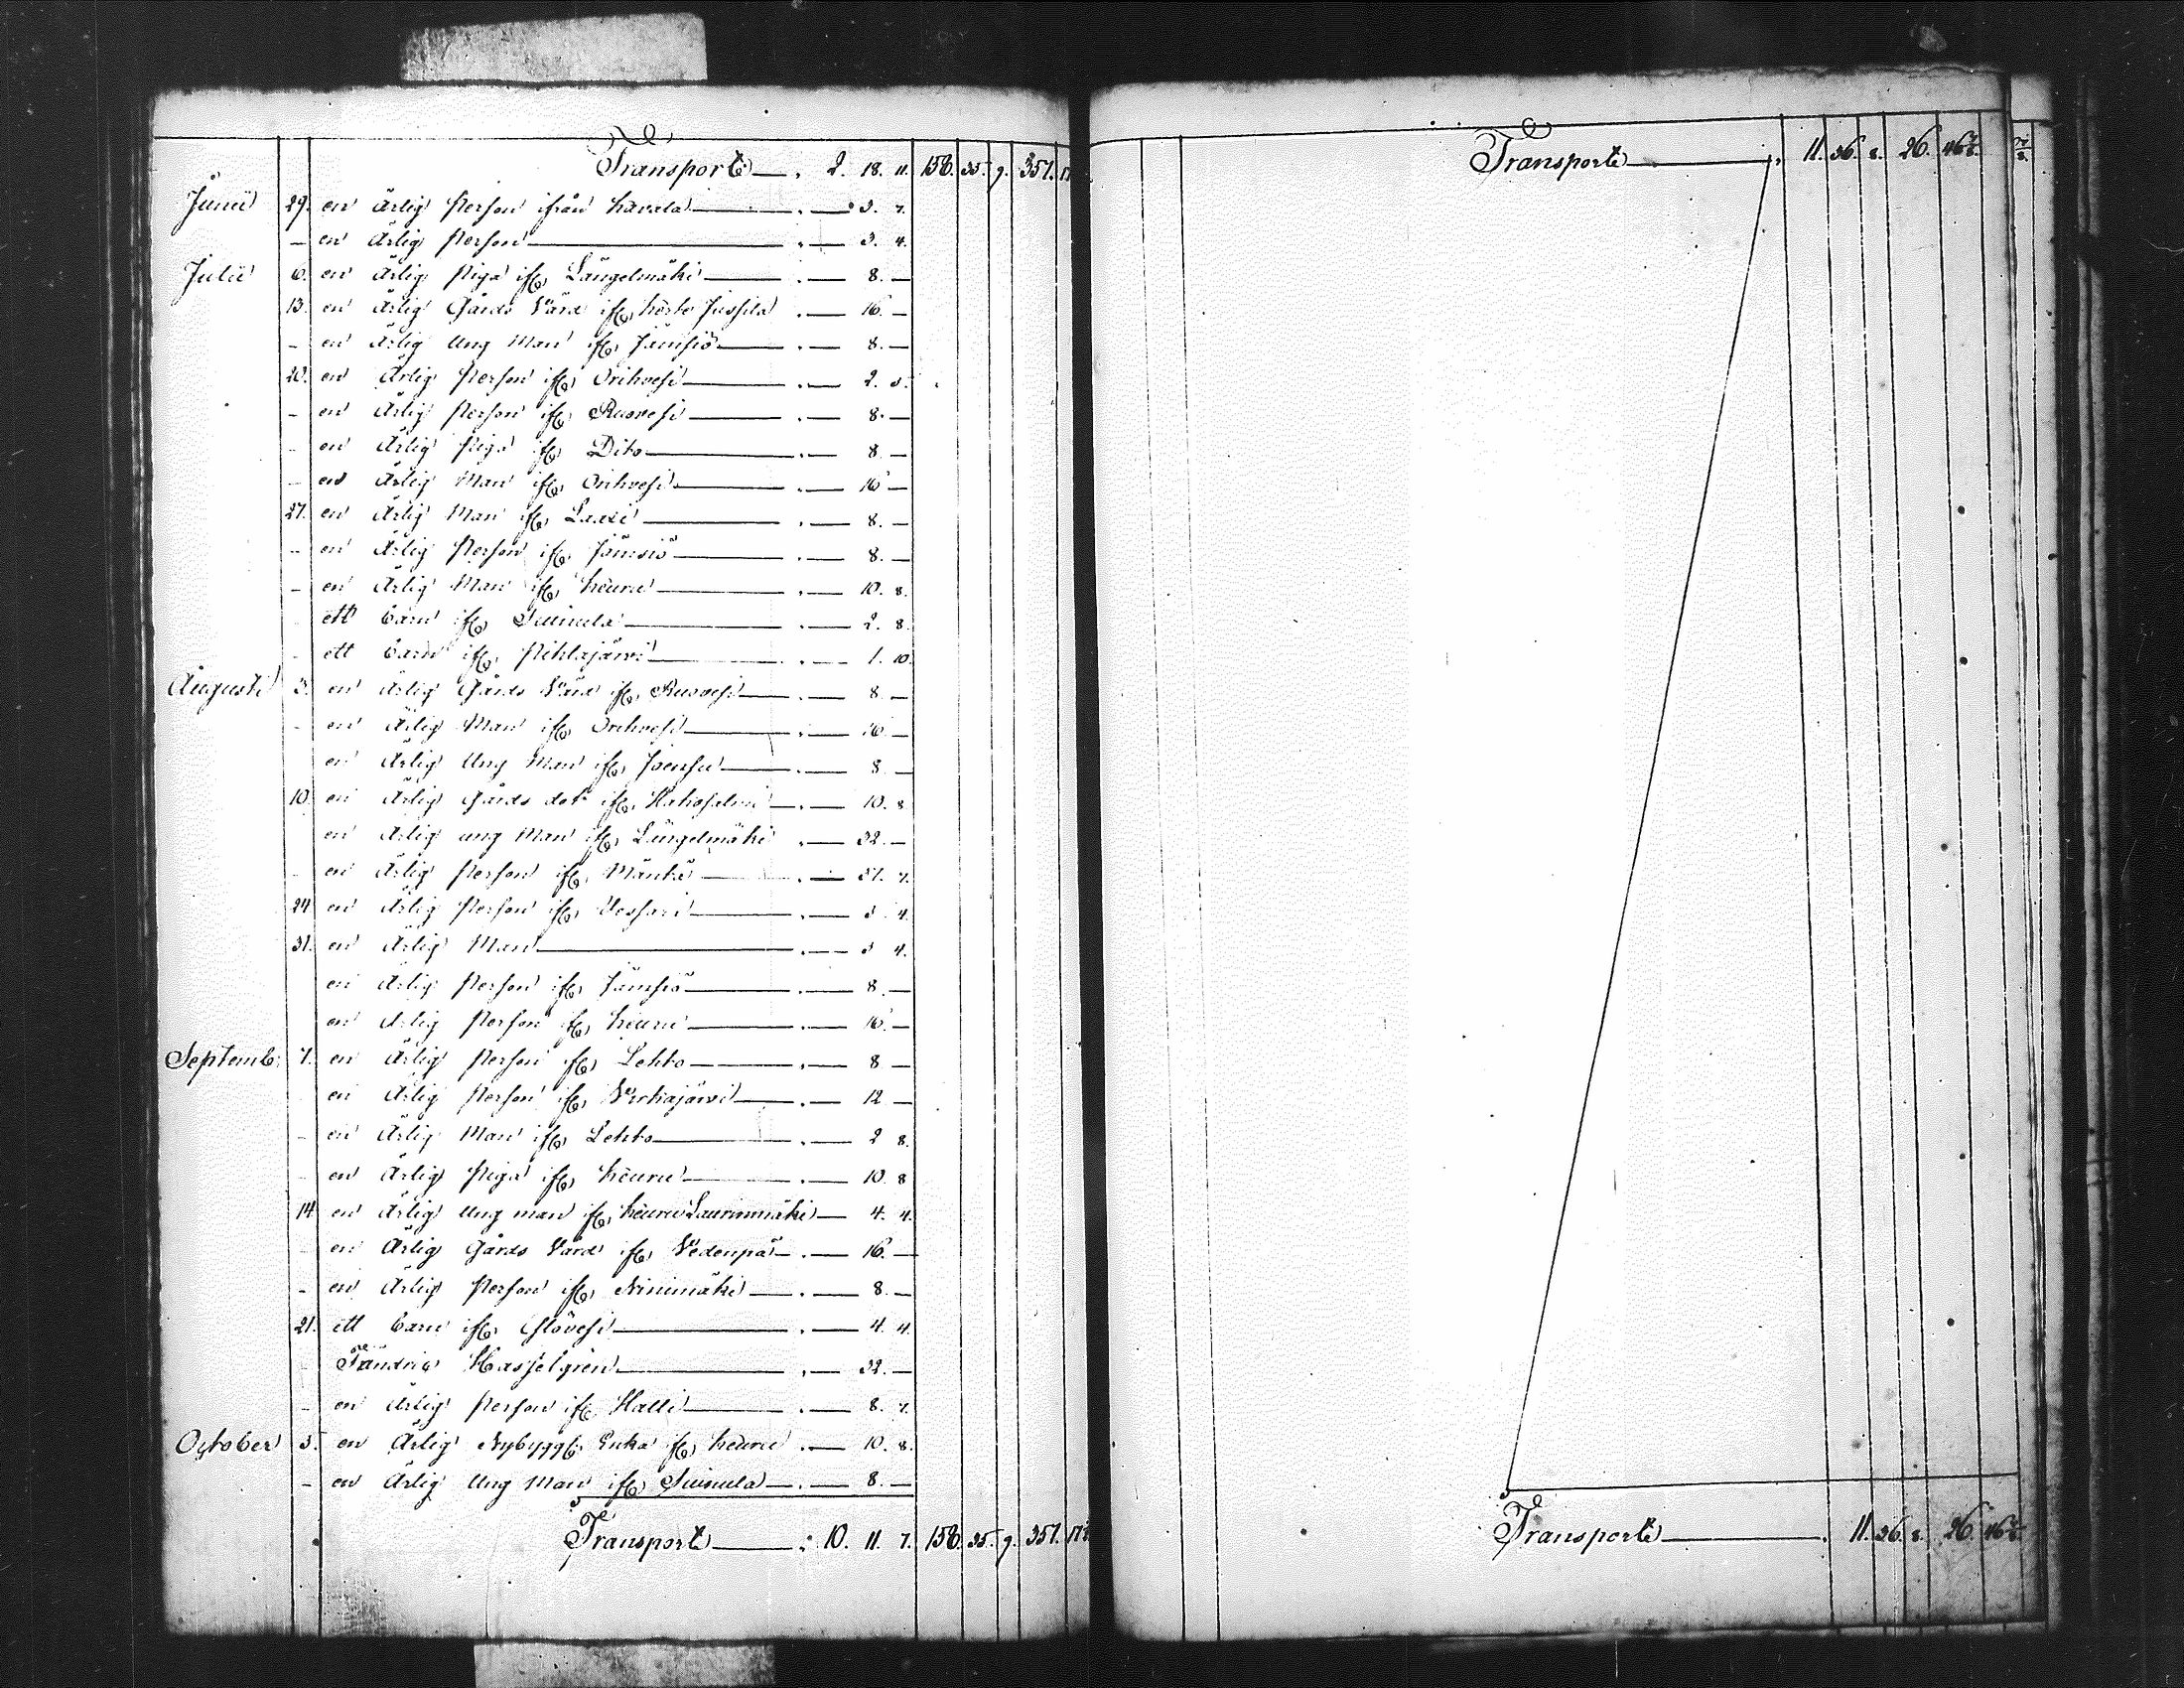 Transport — . 2. 18. 11. 158. 35. 9. 357.
Junii 29. en ärlig Person ifrån Kavala — . — 3. 7.
— en ärlig Person — . — 3. 4.
Julii 6. en ärlig Piga ifr Längelmäki — . — 8. —
13. en ärlig Gårds Värd ifr Jussila . — 16. —
— en ärlig Ung Man ifr Jämsiö — . — 8. —
20. en ärlig Person ifr Orihvesi — . — 2.
— en ärlig Person ifr Ruovesi — . — 8. —
— en ärlig Piga ifr Dito — . — 8. —
— en ärlig Man ifr Orihvesi — . — 16 —
27. en ärlig Man ifr — . — 8. —
— en ärlig Person ifr Jämsiö — . — 8. —
— en ärlig Man ifr Keuru — . — 10. 8.
ett barn ifr Suinula — . — 2. 8.
ett barn ifr Pihlajärvi — . — 1. 10.
Augusti 3. en ärlig Gårds Värd ifr Ruovesi — . — 8 —
— en ärlig Man ifr Orihvesi — . — 16 —
en ärlig Ung Man ifr — . — 8 —
10. en ärlig Gårds dotr ifr — . — 10. 8
en ärlig ung Man ifr Längelmäki . — 32. —
en ärlig Person ifr Mänttä — . — 7.
24. en ärlig Person ifr — . — 4.
31. en ärlig Man — . — 3 4.
en ärlig Person ifr Jämsiö — . — 8. —
en ärlig Person ifr Keuru — . — 16. —
Septemb: 7. en ärlig Person ifr Lehto — . — 8 —
en ärlig Person ifr — . — 12 —
— en ärlig Man ifr Lehto — . — 2 8.
— en ärlig Piga ifr Keuru — . — 10. 8
14 en ärlig Ung man ifr Keuru Laurinmäki — 4. 4.
en ärlig Gårds Värd ifr Vedenpää — . — 16. —
— en ärlig Person ifr Ninimäki — . — 8. —
21. ett barn ifr — . — 4. 4.
Fändric Hasselgrén — . — 32. —
— en ärlig Person ifr Halli — . — 8. 7.
October 5. en ärlig Nybygg: Enka ifr Keuru . — 10. 8.
— en ärlig Ung Man ifr Suinula — . — 8. —
Transport — : 10. 11. 7. 158. 35. 9. 357.
Transport — . 11. 36. 8. 26.
Transport — . 11. 36. 8. 26.